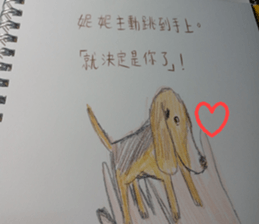 妮妮主動跳到手上。
「就決定是你了」!